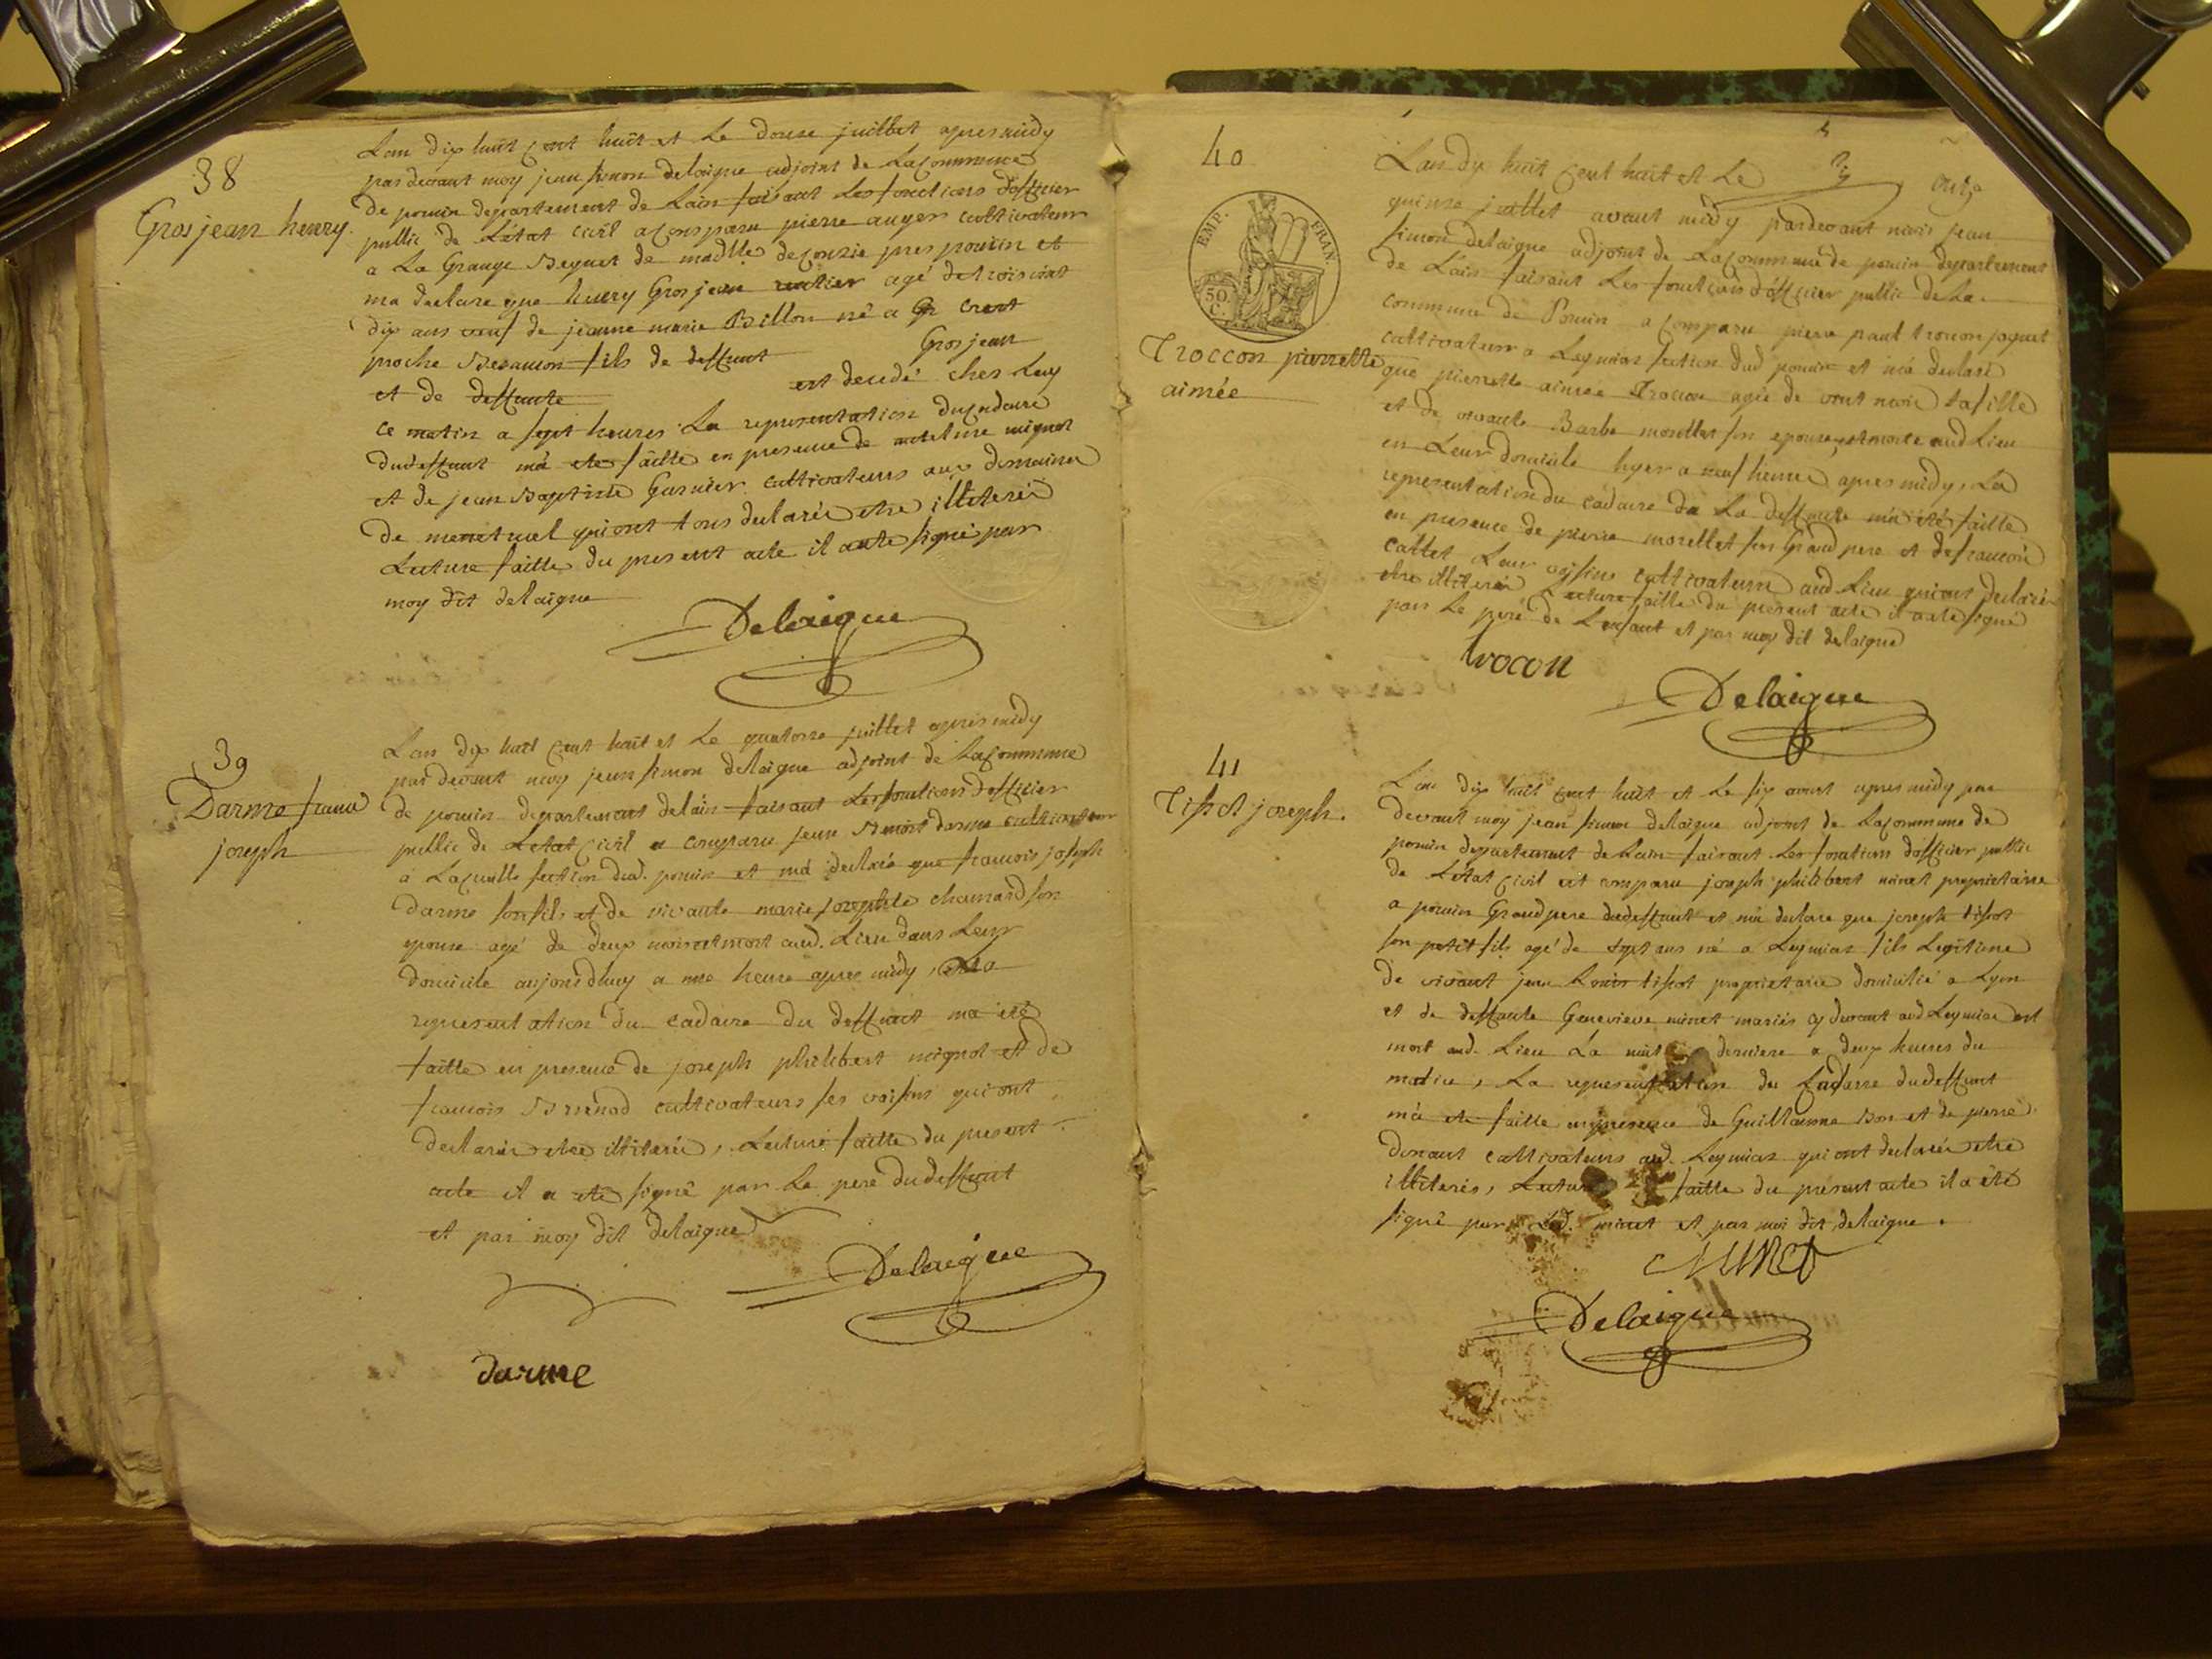 38
Gros jean henry.
Lan dix huit cent huit et le douze juillet apres midy
pardevant moy jean simon delaigue adjoint de la commune
de poncin departement de Lain faisant les fonctions dofficier
public de Létat civil a comparu pierre auger cultivateur
a La Grange Beguet de madlle deconzie pres poncin et
ma declare que henry Grosjean rentier agé de trois vint
dix ans veuf de jeanne marie Billon né a crest
proche Besancon fils de deffunt Grosjean
et de deffunte est decedé chez luy
ce matin a sept heures La representation du cadavre
dudeffunt má eté faitte en presence de mignot
et de jean Baptiste Garnier cultivateurs aux domaines
de menetruel qui ont tous declarés etre illiterés
Lecture faitte du present acte il a eté signé par
moy dit delaigue
Delaigue
39
Darme francois
joseph
Lan dix huit cent huit et Le quatorze juillet apres midy
par devant moy jean simon delaigue adjoint de la commune
de poncin departement delain faisant les fonctions dofficier
public de Letat civil a comparu jean Benoit darme cultivateur
a Lacueille section dud. poncin et má declaré que francois joseph
darme son fils et de vivante marie josephte chamard son
epouse agé de deux mois est mort aud. Lieu dans leur
domicile aujourdhuy a une heure apres midy, La
representation du cadavre du deffunt ma eté
faitte en presence de joseph philibert mignot et de
francois Brenod cultivateurs ses voisins qui ont
declarés etre illiterés, Lecture faitte du present
acte il a eté signé par Le pere dudeffunt
et par moy dit delaigue
Delaigue
darme
40
EMP. FRAN.
50 C.
Troccon pierrette
aimée
Lan dix huit cent huit et Le
quinze juillet avant midy pardevant mois jean
simon delaigue adjoint de La commune de poncin departement
de Lain faisant Les fonctions dofficier public de La
commune de Poncin a comparu pierre paul trocon joquet
cultivateur a Leymiaz section dud poncin et má declaré
que pierrette aimée Trocon agée de vint mois sa fille
et de vivante Barbe morellet son epouse, est morte aud Lieu
en Leur domicile hyer a neuf heures apres midy, La
representation du cadavre de La deffunte má eté faitte
en presence de pierre morellet son Grand pere et de francois
callet Leur voisins cultivateurs aud Lieu qui ont declarés
etre illiterés Lecture faitte du present acte il a eté signé
par Le pere de Lenfant et par moy dit delaigue
trocon
Delaigue
41
Tissot joseph.
Lan dix huit cent huit et Le six aoust apres midy par
devant moy jean simon delaigue adjoint de La commune de
poncin departement de Lain faisant Les fonctions dofficier public
de Létat civil est comparu joseph philibert minet proprietaire
a poncin Grand pere dudeffunt et má declare que joseph tissot
son petit fils agé de sept ans né a Leymiaz fils Legitime
de vivant jean Louis tissot proprietaire domicilié a Lyon
et de deffunte Genevieve minet mariés cy devant aud Leymiaz est
mort aud. Lieu La nuit derniere a deux heures du
matin, La representation du Cadavre dudeffunt
má eté faitte en presence de Guillaume Bon et de pierre
durant cultivateurs aud. Leymiaz qui ont declarés etre
illiterés, Lecture faitte du present acte il a eté
signé par Led. minet et par moi dit delaigue.
Minet
Delaigue